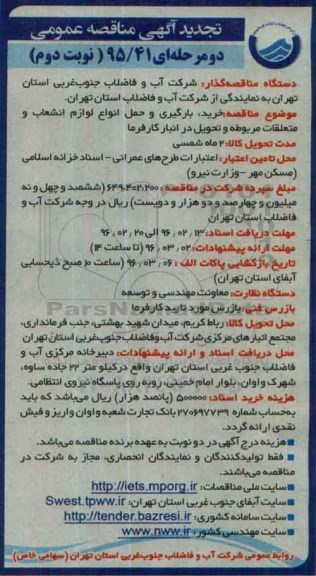 تجدید آگهی مناقصه عمومی
دومرحله‌ای ۹۵/۴۱ ( نوبت دوم)
دستگاه مناقصه‌گذار: شرکت آب و فاضلاب جنوب‌غربی استان
تهران به نمایندگی از شرکت آب و فاضلاب استان تهران.
موضوع مناقصه:خرید، بارگیری و حمل انواع لوازم انشعاب و
متعلقات مربوطه و تحویل در انبار کارفرما
مدت تحویل کالا: ۲ ماه شمسی
محل تامین اعتبار: اعتبارات طرح‌های عمرانی - اسناد خزانه اسلامی
(مسکن مهر - وزارت نیرو)
مبلغ سپرده شرکت در مناقصه: ۶۴۹،۴۰۲،۲۰۰ (ششصد و چهل و نه
میلیون و چهارصد و دو هزار و دویست) ریال در وجه شرکت آب و
فاضلاب استان تهران
مهلت دریافت اسناد: ۱۳ / ۰۲ / ۹۶ الی ۲۰ / ۰۲ / ۹۶
مهلت ارائه پیشنهادات: ۰۲ / ۰۳ / ۹۶ (تا ساعت ۱۴)
تاریخ بازگشایی پاکات الف : ۰۶ / ۰۳ / ۹۶ (ساعت ۱۰ صبح ذیحسابی
آبفای استان تهران)
دستگاه نظارت: معاونت مهندسی و توسعه
بازرس فنی: بازرس مورد تایید کارفرما
محل تحویل کالا: رباط کریم، میدان شهید بهشتی، جنب فرمانداری،
مجتمع انبارهای مرکزی شرکت آب وفاضلاب جنوب‌غربی استان تهران
محل دریافت اسناد و ارائه پیشنهادات: دبیرخانه مرکزی آب و
فاضلاب جنوب غربی استان تهران واقع درکیلو متر ۲۲ جاده ساوه،
شهرک واوان، بلوار امام خمینی، روبه روی پاسگاه نیروی انتظامی.
هزینه خرید اسناد: ۵۰۰۰۰۰ (پانصد هزار) ریال می‌باشد که باید
به‌حساب شماره ۲۷۰۶۹۷۷۳۹ بانک تجارت شعبه واوان واریز و فیش
نقدی ارائه گردد.
هزینه درج آگهی در دو نوبت به عهده برنده مناقصه می‌باشد.
فقط تولیدکنندگان و نمایندگان انحصاری، مجاز به شرکت در
مناقصه می‌باشند.
سایت ملی مناقصات: http://iets.mporg.ir
سایت آبفای جنوب غربی استان تهران: Swest.tpww.ir
سایت سامانه کشوری: http://tender.bazresi.ir
سایت مهندسی کشور: www.nww.ir
روابط عمومی شرکت آب و فاضلاب جنوب‌غربی استان تهران (سهامی خاص)